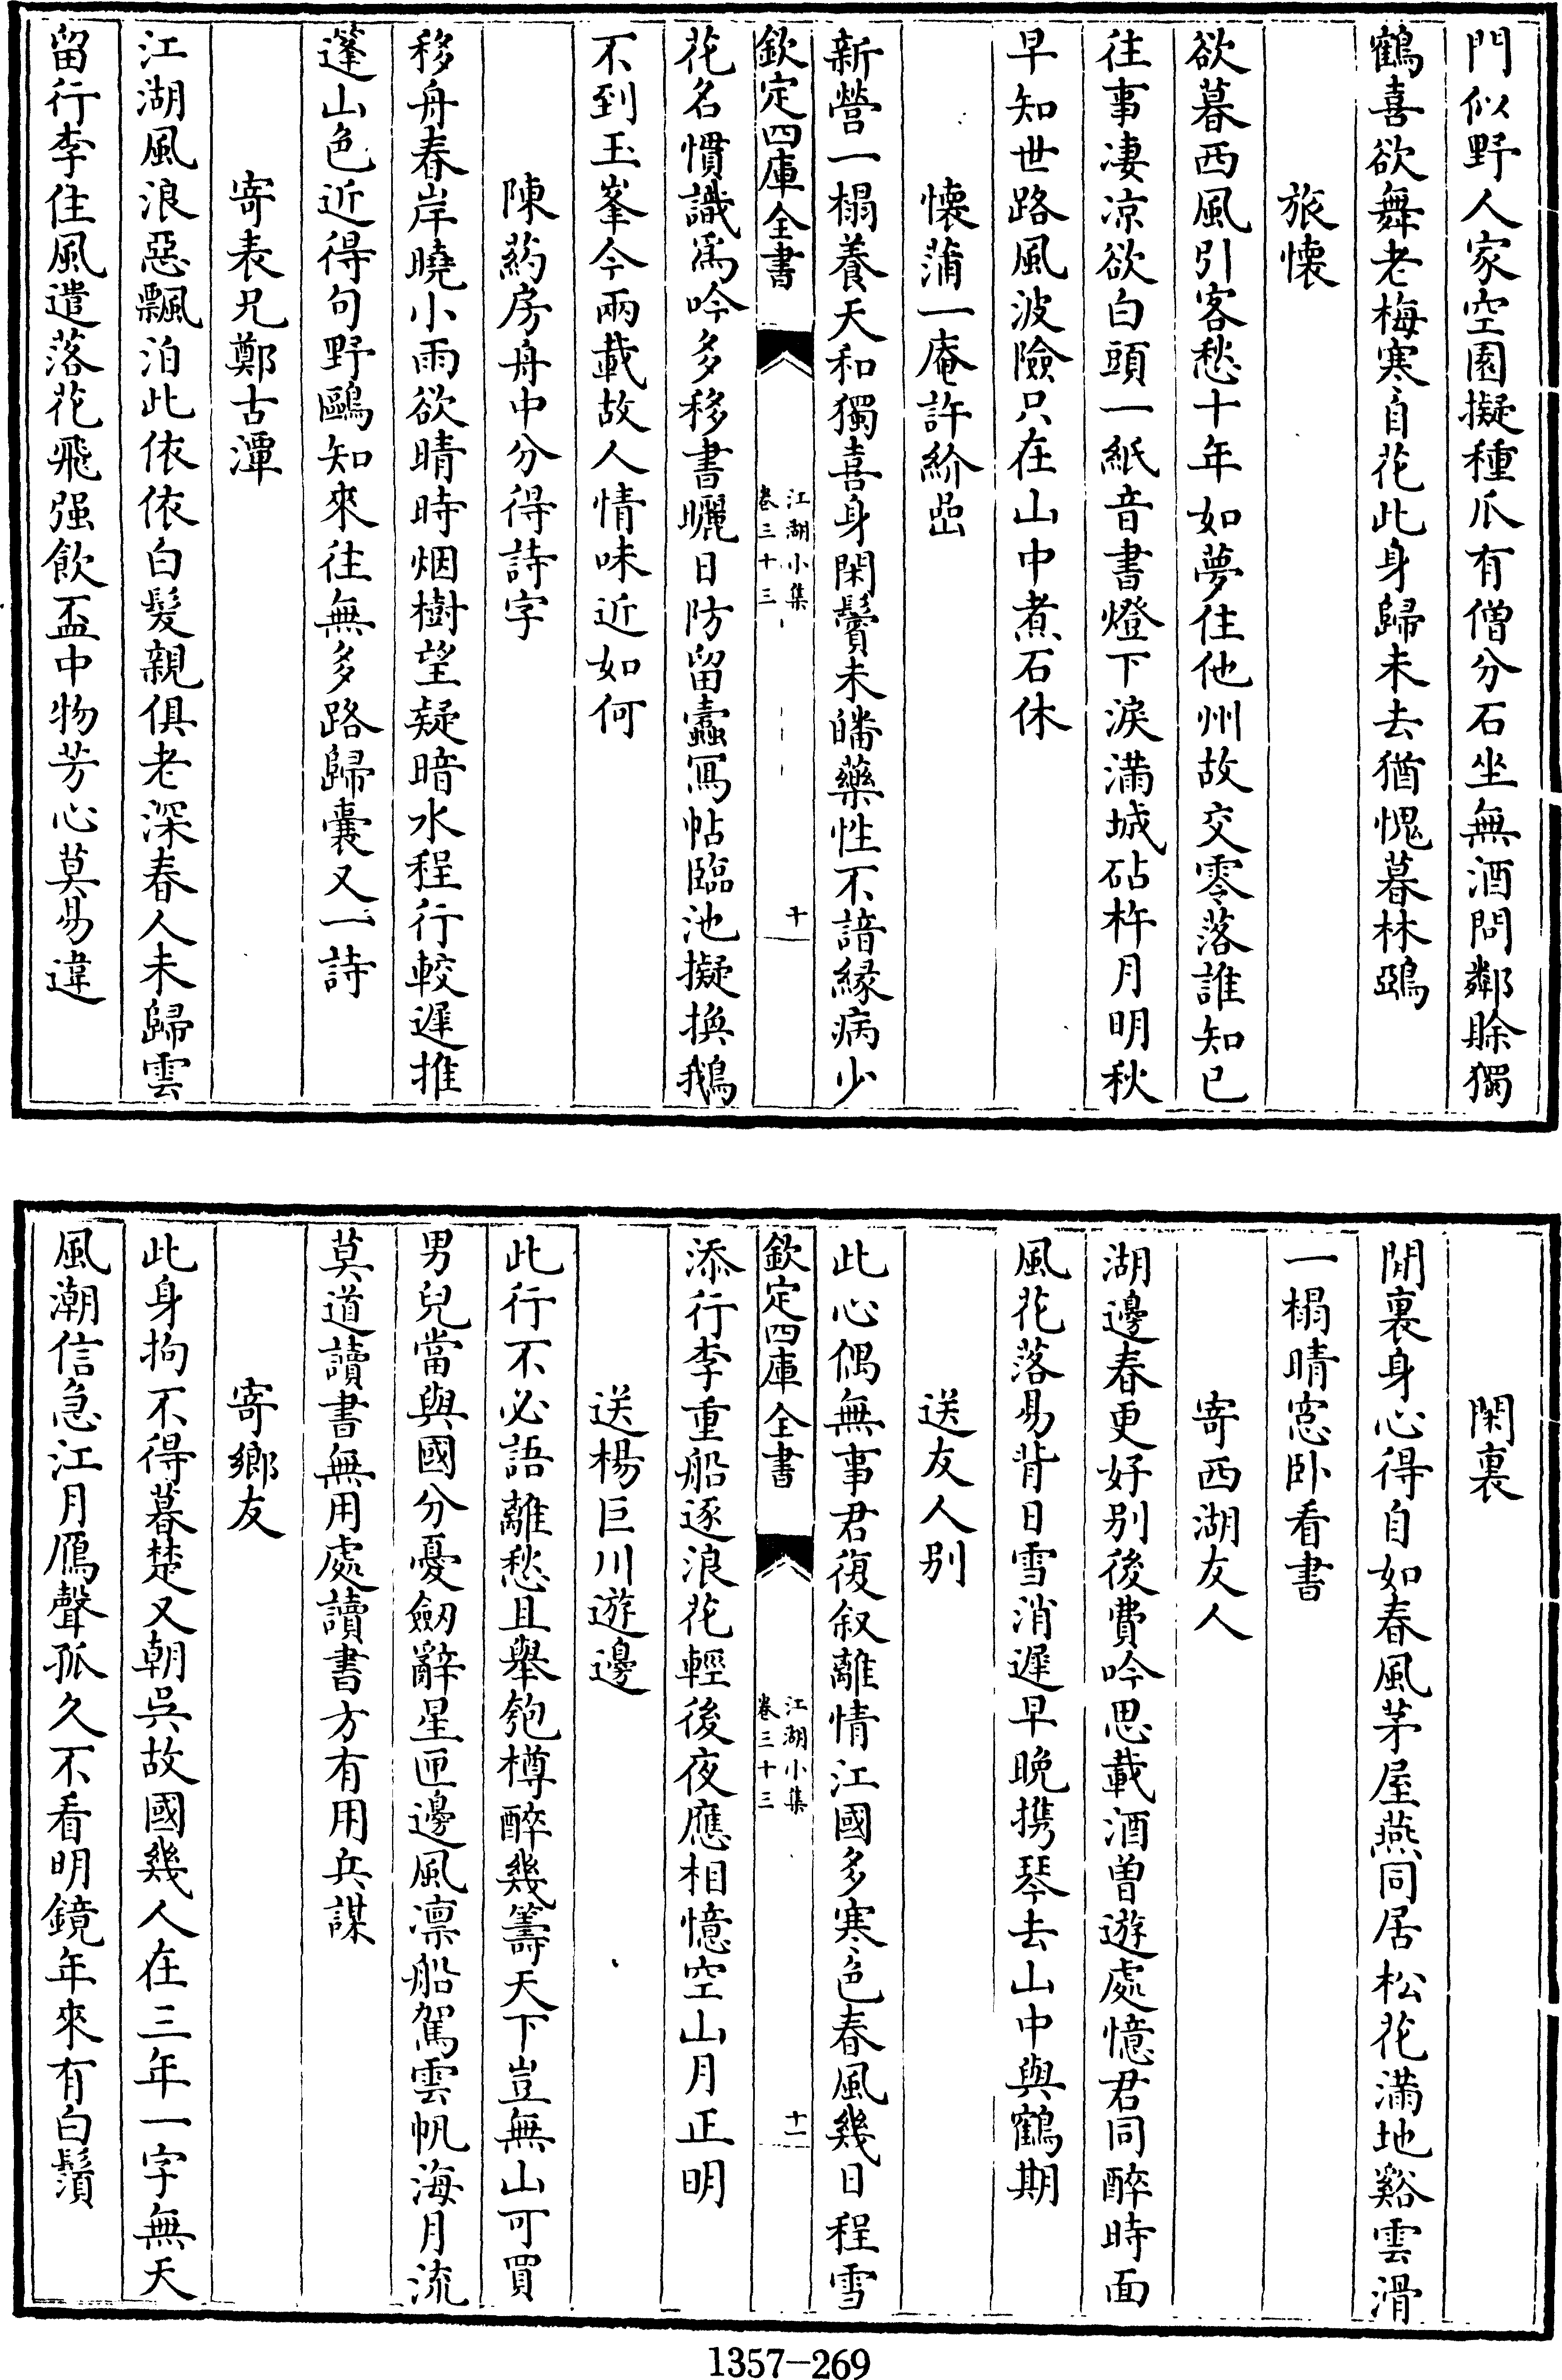 門似野人家空園擬種瓜有僧分石坐無酒問鄰賖獨
鶴喜欲舞老梅寒自花此身歸未去猶愧暮林鵶
旅懷
欲暮西風引客愁十年如夢住他州故交零落誰知已
往事凄凉欲白頭一紙音書燈下淚滿城砧杵月明秋
早知世路風波險只在山中煮石休
懷蒲一庵許紒嵒
新營一榻養天和獨喜身閑鬢未皤藥性不諳緣病少
欽定四庫全書
江湖小集
卷三十三
十
花名慣識爲吟多移書曬日防留蠹寫帖臨池擬換鵝
不到玉峯今兩載故人情味近如何
陳葯房舟中分得詩字
移舟春岸曉小雨欲晴時烟樹望疑暗水程行較遲推
篷山色近得句野鷗知來往無多路歸囊又一詩
寄表兄鄭古潭
江湖風浪惡飄泊此依依白髮親俱老深春人未歸雲
留行李住風遣落花飛强飲盃中物芳心莫易違
閑裏
閒裏身心得自如春風茅屋燕同居松花滿地谿雲滑
一榻晴窓卧看書
寄西湖友人
湖邊春更好别後費吟思載酒曽遊處憶君同醉時面
風花落易背日雪消遲早晚携琴去山中與鶴期
送友人别
此心偶無事君復叙離情江國多寒色春風幾日程雪
欽定四庫全書
江湖小集
卷三十三
十一
添行李重船逐浪花輕後夜應相憶空山月正明
送楊巨川遊邊
此行不必語離愁且舉匏樽醉幾籌天下豈無山可買
男兒當與國分憂劒辭星匣邊風凛船駕雲帆海月流
莫道讀書無用處讀書方有用兵謀
寄鄉友
此身拘不得暮楚又朝吳故國幾人在三年一字無天
風潮信急江月鴈聲孤久不看明鏡年來有白鬚
1357-269